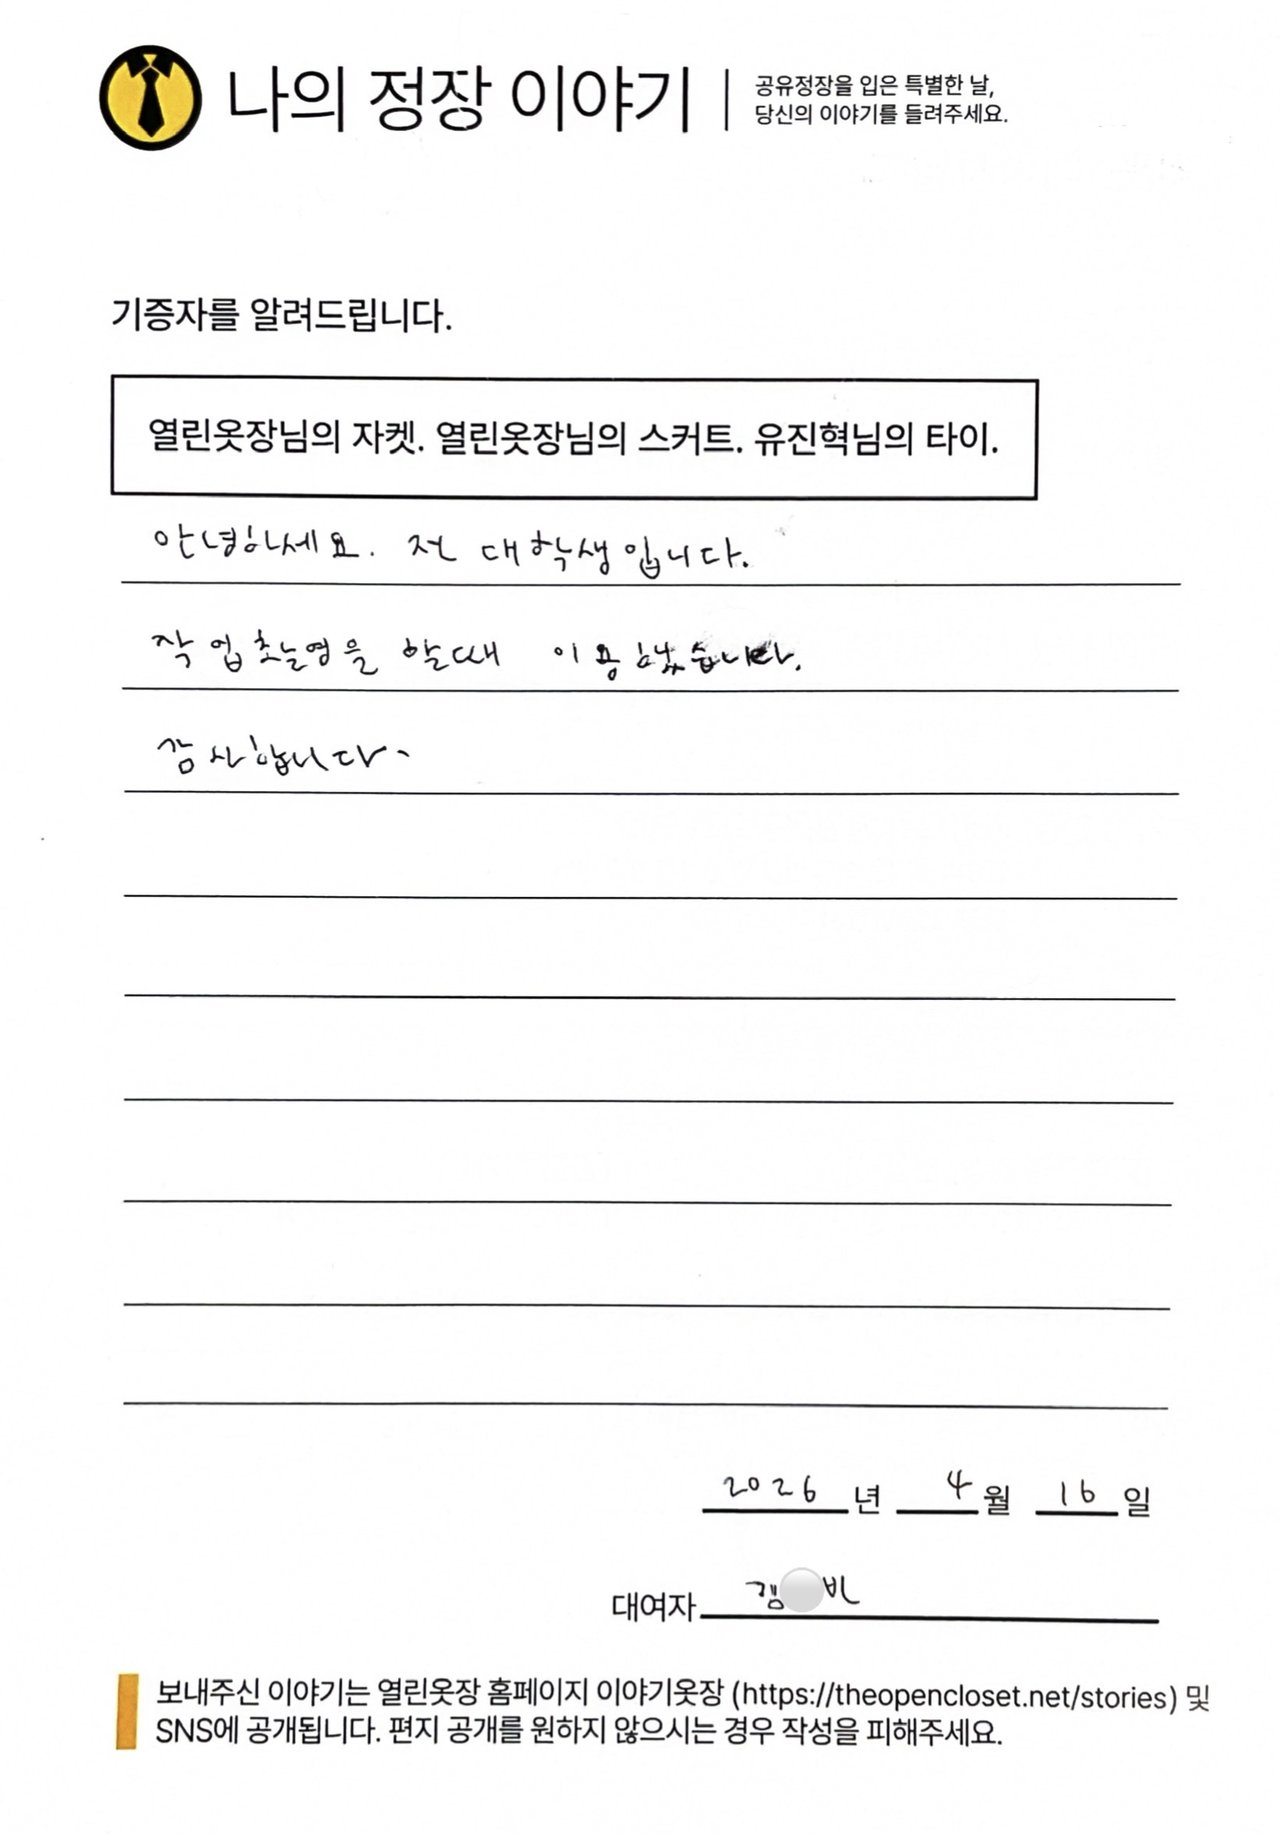 나의 정장 이야기
공유정장을 입은 특별한 날,
당신의 이야기를 들려주세요.
기증자를 알려드립니다.
열린옷장님의 자켓. 열린옷장님의 스커트. 유진혁님의 타이.
안녕하세요. 전 대학생입니다.
작업촬영을 할때 이용했습니다.
감사합니다.
2026년 4월 16일
대여자 김 빈
보내주신 이야기는 열린옷장 홈페이지 이야기옷장 (https://theopencloset.net/stories) 및
SNS에 공개됩니다. 편지 공개를 원하지 않으시는 경우 작성을 피해주세요.